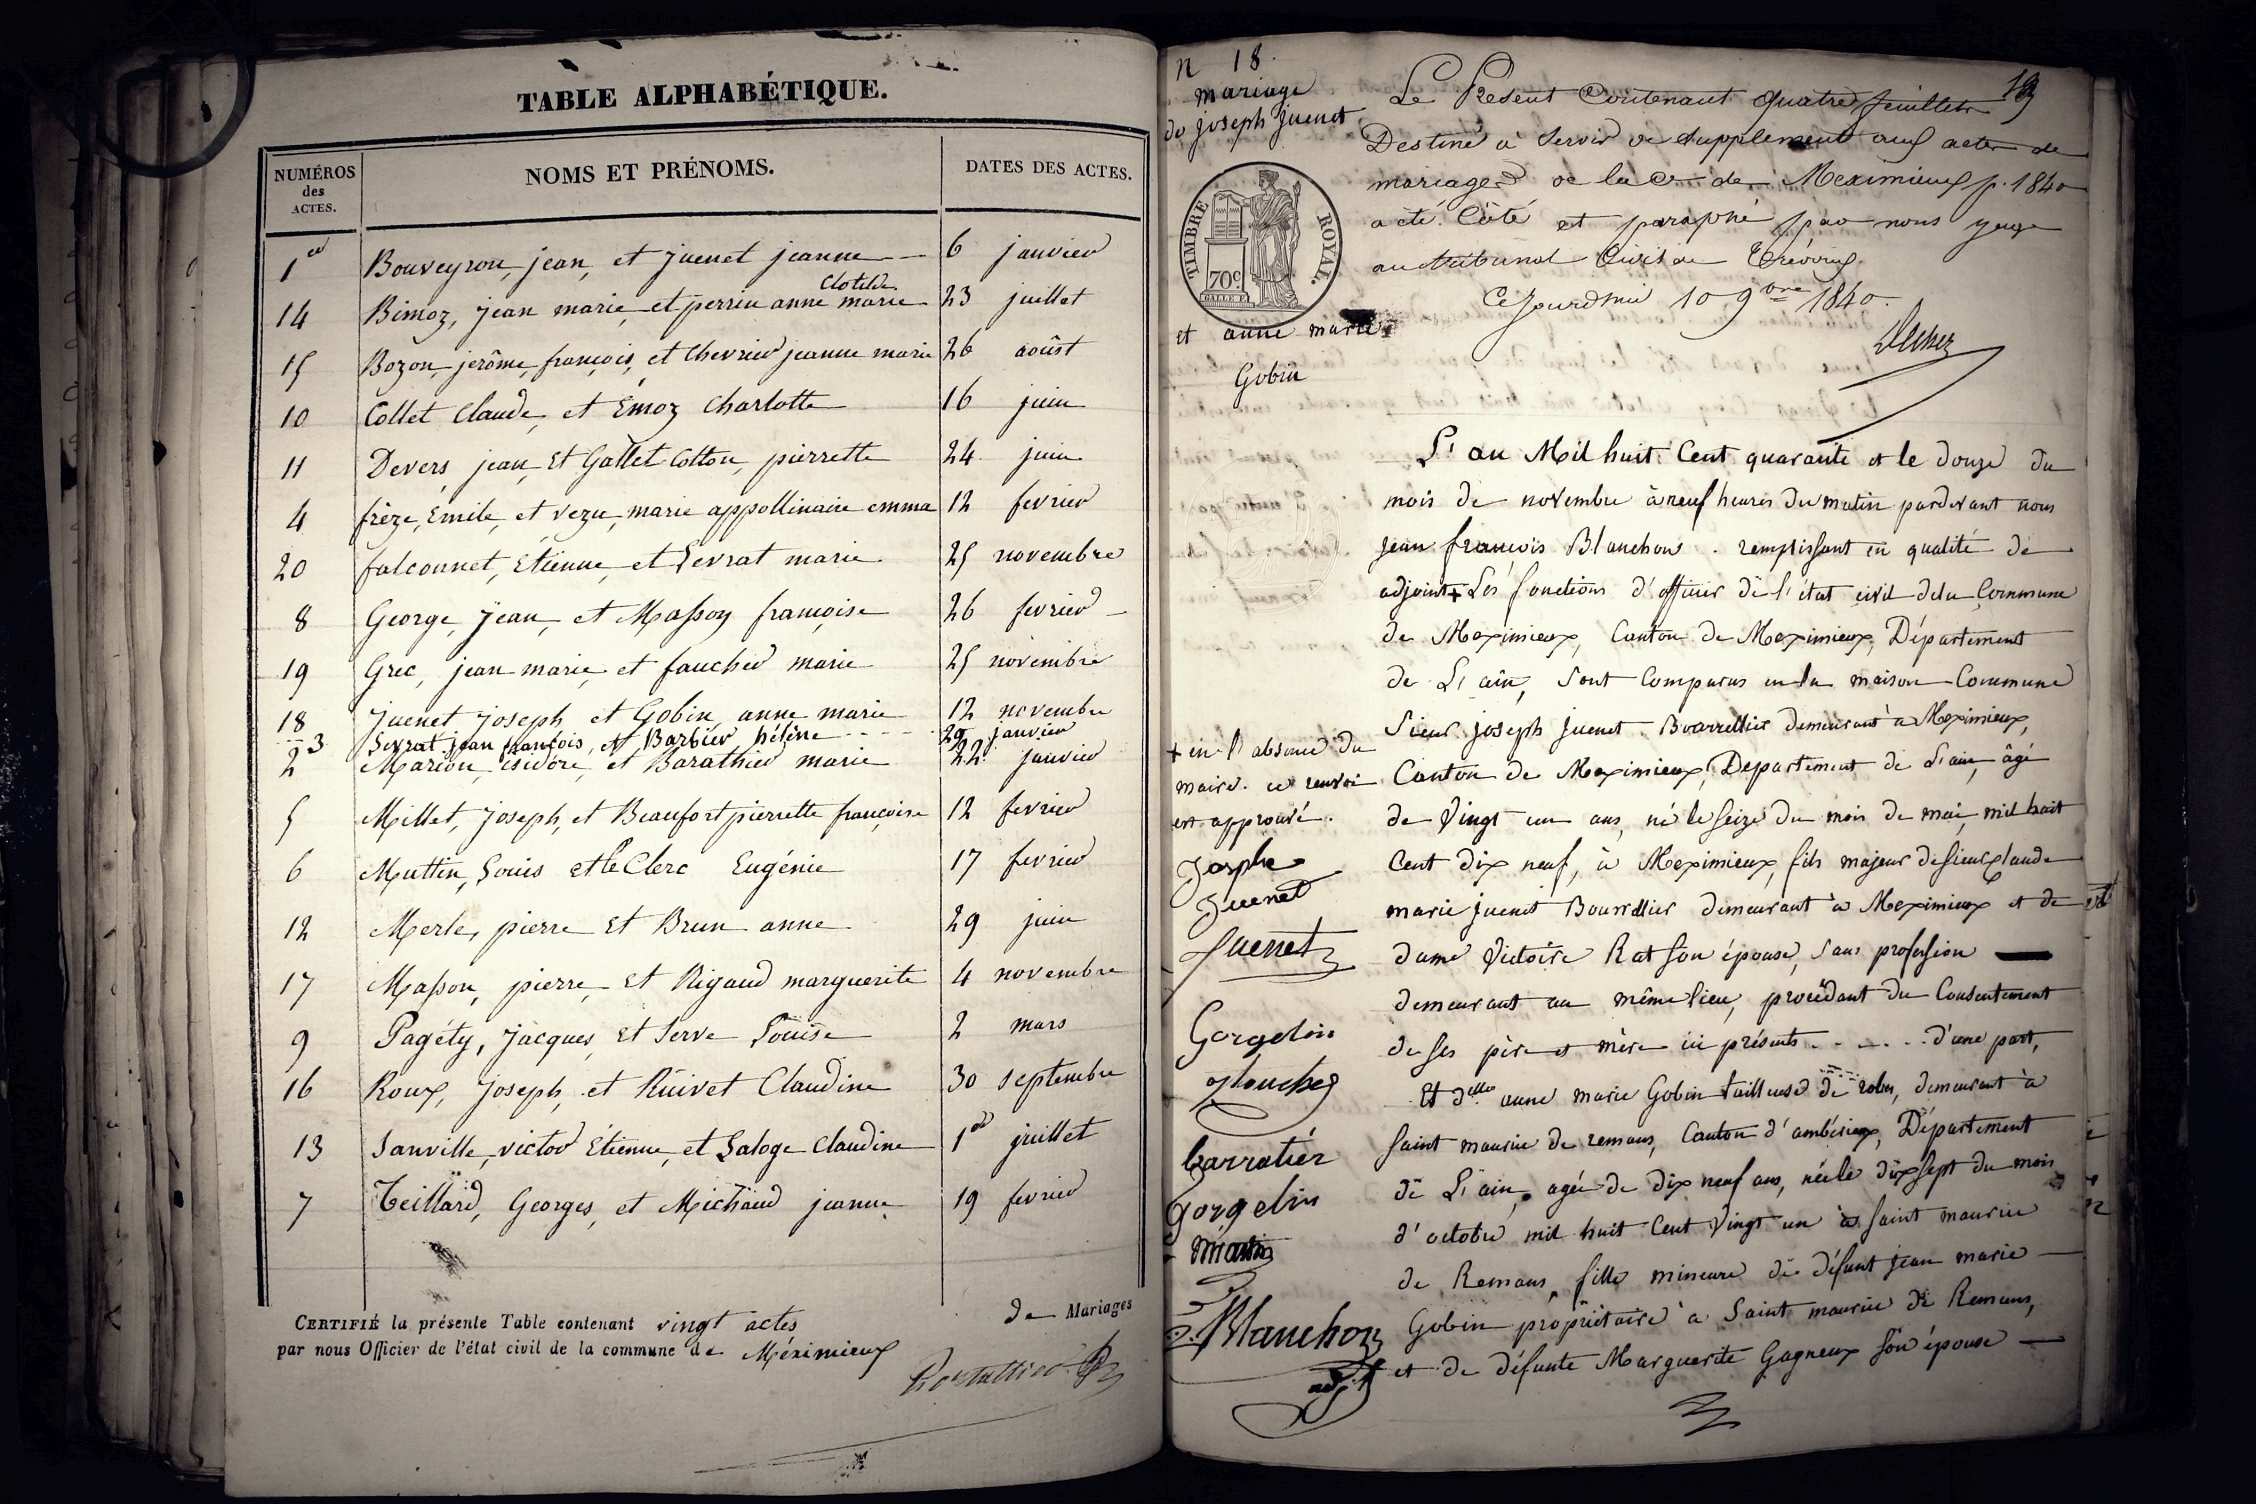 TABLE ALPHABÉTIQUE.
NUMÉROS des ACTES. NOMS ET PRÉNOMS. DATES DES ACTES.
1er Bouveyron, jean, et juenet jeanne 6 janvier
Clotilde
14 Bimoz, jean marie, et perrin anne marie 23 juillet
15 Bozon, jerôme, françois, et Chevrier jeanne marie 26 août
10 Collet Claude, et Émoz Charlotte 16 juin
11 Devers, jean, Et Gallet Cotton, pierrette 24 juin
4 frèze, Émile, et vezu, marie appollinaire emma 12 fevrier
20 falconnet, Etienne, et Levrat marie 25 novembre
8 George, Jean, et Masson françoise 26 fevrier
19 Grec, jean marie, et faucher marie 25 novembre
18 Juenet Joseph, et Gobin, anne marie 12 novembre
3 Levrat jean françois, et Barbier hélène 29 janvier
2 Marion, isidore, et Barathier marie 22 janvier
5 Millet, Joseph, et Beaufort pierrette françoise 12 fevrier
6 Muttin, Louis et le Clerc Eugénie 17 fevrier
12 Merle, pierre Et Brun anne 29 juin
17 Masson, pierre, Et Rigaud marguerite 4 novembre
9 Pagéty, Jacques, Et Serve Louise 2 mars
16 Roux, Joseph, et Ruivet Claudine 30 septembre
13 Sanville, victor Étienne, et Laloge Claudine 1er juillet
7 Teillard, Georges, et Michaud jeanne 19 fevrier
CERTIFIÉ la présente Table contenant vingt actes de Mariages
par nous Officier de l'état civil de la commune de Méximieux
n 18.
mariage
de joseph juenet
TIMBRE ROYAL.
70c
et anne marie
Gobin
19
Le Présent Contenant quatre feuillets
Destiné à servir de supplément aux actes de
mariages de la Cne de Meximieux p. 1840
a été Côté et paraphé par nous juge
au tribunal Civil de Trévoux
Ce jourd'hui 10 9bre 1840.
L'an Mil huit Cent quarante et le douze du
mois de novembre à neuf heures du matin pardevant nous
jean françois Blanchon. remplissant en qualité de
adjoint + Les fonctions d'officier de l'état civil dela Commune
de Meximieux, Canton de Meximieux, Département
de L'ain, Sont Comparus en la maison Commune
Sieur joseph juenet Bourrellier demeurant à Meximieux,
Canton de Meximieux, Département de L'ain, âgé
de Vingt un ans, né le seize du mois de mai, mil huit
Cent dix neuf, à Meximieux, fils majeur de sieur Claude
marie juenet Bourrellier demeurant à Meximieux et de
dame Victoire Rat son épouse, sans profession
demeurant au même lieu, procédant du Consentement
de ses père et mère ici présents . . . . . d'une part,
Et delle anne marie Gobin tailleuse de robes, demeurant à
saint maurice de remans, Canton d'ambérieux, Département
de L'ain, agée de dix neuf ans, née le dix sept du mois
d'octobre mil huit Cent Vingt un à saint maurice
de Remans, fille mineure de défunt jean marie
Gobin propriétaire à Saint maurice de Remans,
et de défunte Marguerite Gagneux son épouse
+ en l'absence du
maire. ce renvoi
est approuvé.
Josephe
Juenet
Juenet
Gorgelin
Carratier
Gorgelin
Martin
Blanchon
adjt